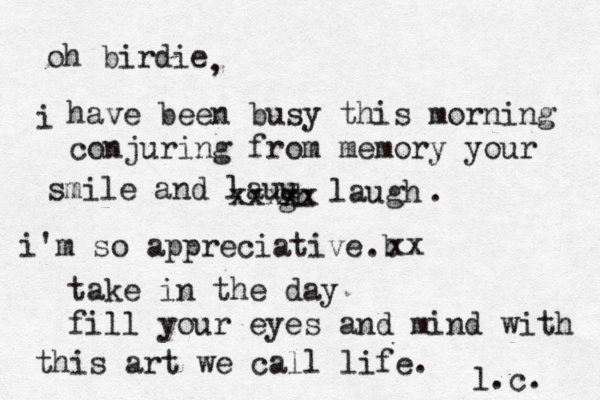 oh birdie,
i have been busy this morning
conjuring from memory your
smile and laugh.
i'm so appreciative. xx
take in the day
fill your eyes and mind with
this art we call life.
l.c.